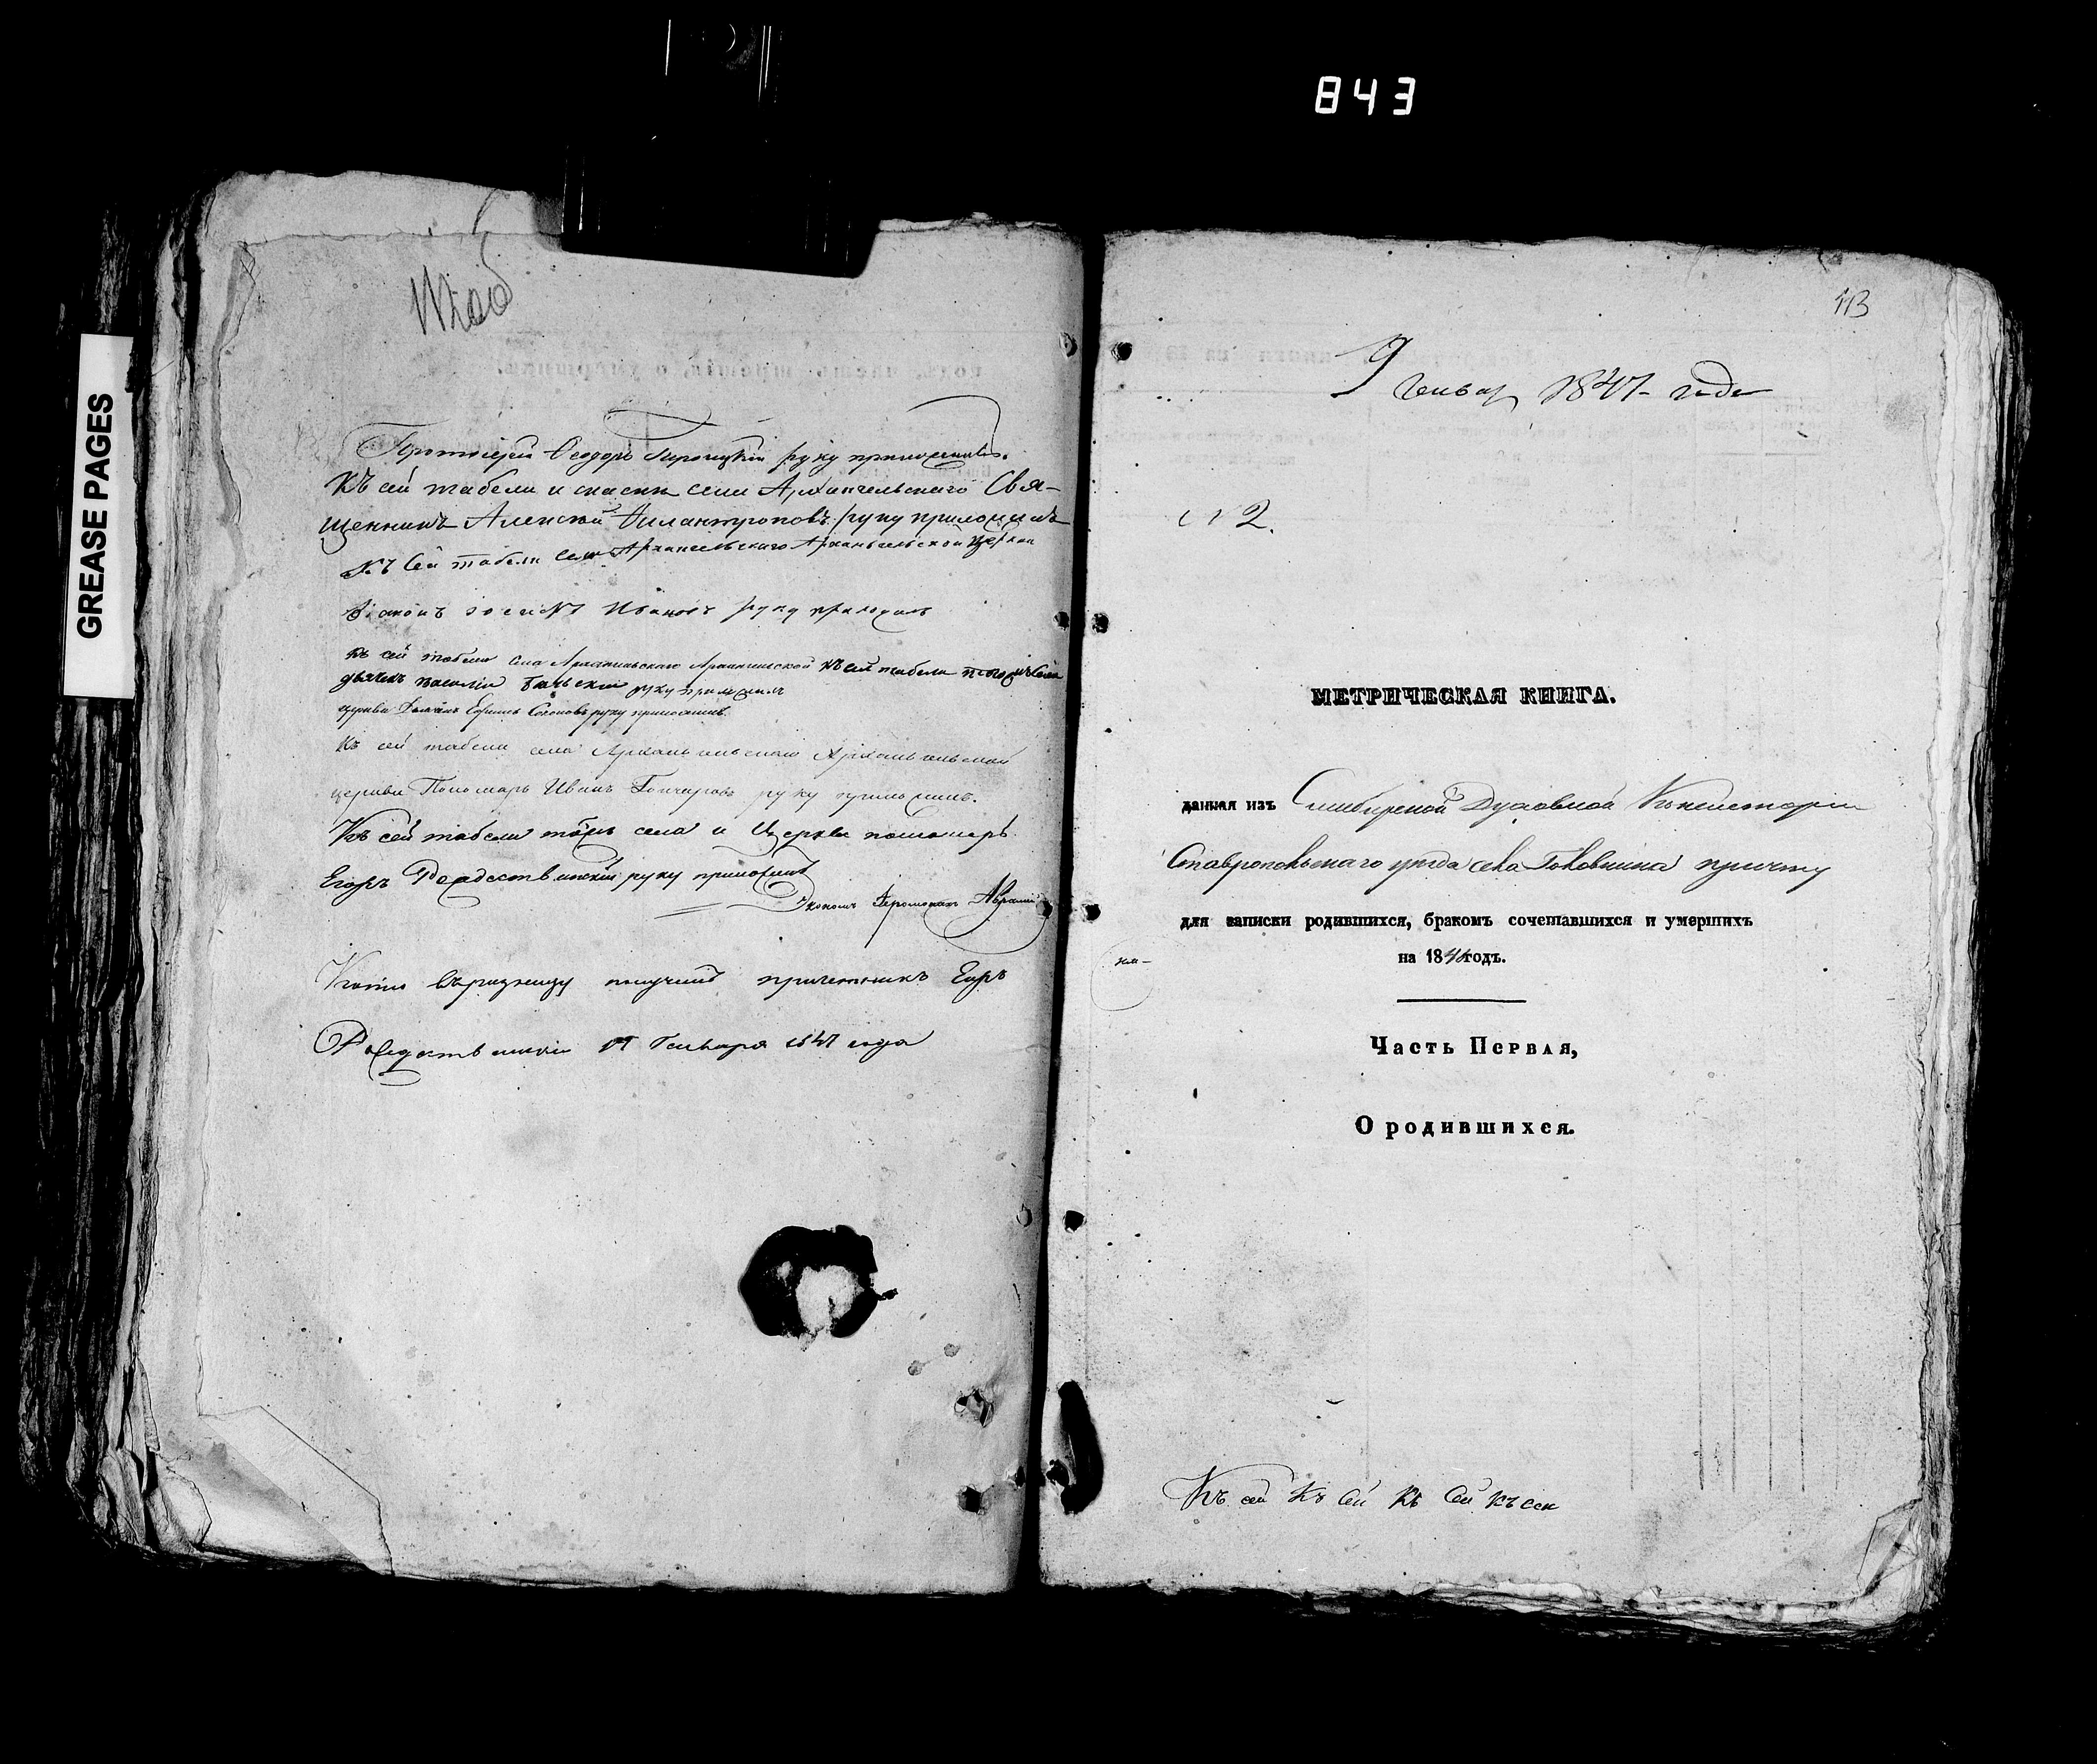 843
GREASE PAGES
Протоіерей Ѳеодоръ руку приложилъ.
Къ сей табели и села Архангельскаго Свя-
щенникъ Алексѣй Филантроповъ руку приложилъ
Къ Сей табели села Архангельскаго Архангельской Церкви
Діаконъ Ивановъ руку приложилъ
къ сей табели села Архангельскаго Архангельской къ сей табели
дьячекъ василій руку приложилъ
церкви руку приложилъ.
Къ сей табели села Архангельскаго Архангельской
церкви Пономарь Иванъ Гончаровъ руку приложилъ.
Къ сей табели тойжъ села и Церкви пономарь
Егоръ Рождественскій руку приложилъ
Экономъ Іеромонахъ Авраамій
Копію получилъ причетникъ Егоръ
Рождественскій Генваря 1847 года
113
9 Генвар 1847 года
№ 2.
МЕТРИЧЕСКАЯ КНИГА.
данная изъ Симбирской Духовной Консисторіи
Ставропольскаго уѣзда села Головкина причту
для записки родившихся, бракомъ сочетавшихся и умершихъ
на 184 годъ.
Часть Первая,
О родившихся.
Къ сей Къ сей Къ Сей къ сей